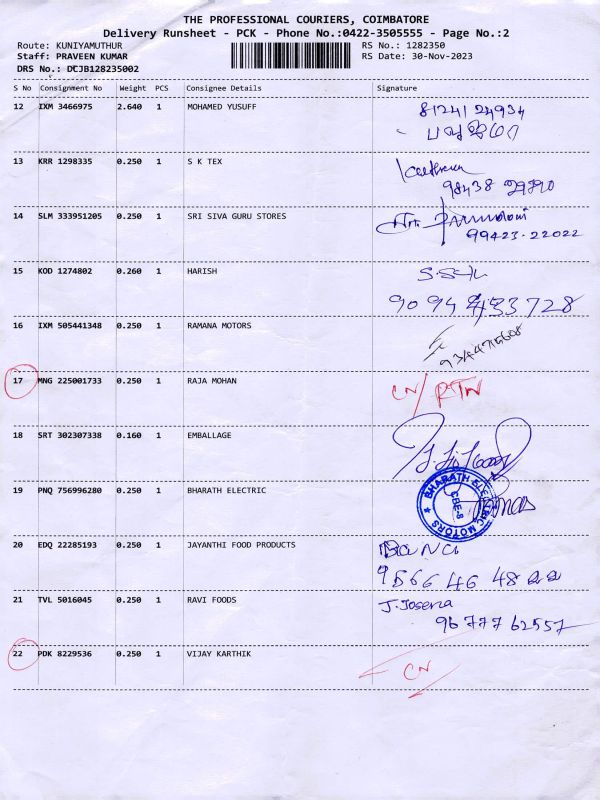 THE PROFESSIONAL COURIERS, COIMBATORE
Delivery Runsheet - PCK - Phone No.:0422-3505555 - Page No.:2
Route: KUNIYAMUTHUR RS No.: 1282350
Staff: PRAVEEN KUMAR RS Date: 30-Nov-2023
DRS No.: DCJB128235002
S No Consignment No Weight PCS Consignee Details Signature
12 IXM 3466975 2.640 1 MOHAMED YUSUFF 8124124934
13 KRR 1298335 0.250 1 S K TEX
98438 29890
14 SLM 333951205 0.250 1 SRI SIVA GURU STORES
99423-22022
15 KOD 1274802 0.260 1 HARISH
16 IXM 505441348 0.250 1 RAMANA MOTORS
17 MNG 225001733 0.250 1 RAJA MOHAN CN/RTN
18 SRT 302307338 0.160 1 EMBALLAGE
19 PNQ 756996280 0.250 1 BHARATH ELECTRIC
BHARATH ELECTRIC MOTORS
CBE-8
20 EDQ 22285193 0.250 1 JAYANTHI FOOD PRODUCTS
9566 46 48 22
21 TVL 5016045 0.250 1 RAVI FOODS
96777 62557
22 PDK 8229536 0.250 1 VIJAY KARTHIK
CN